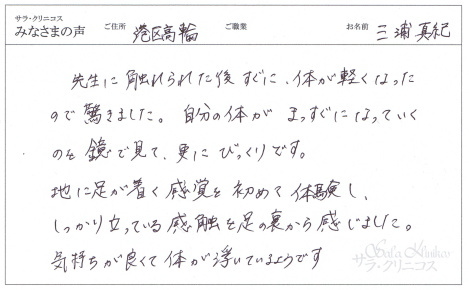 サラ・クリニコス
みなさまの声 ご住所 港区高輪 ご職業 お名前 三浦真紀
先生に触れられた後すぐに、体が軽くなった
ので驚きました。自分の体がまっすぐになっていく
のを鏡で見て、更にびっくりです。
地に足が着く感覚を初めて体験し、
しっかり立っている感触を足の裏から感じました。
気持ちが良くて体が浮いているようです
Sala Klinikos
サラ・クリニコス